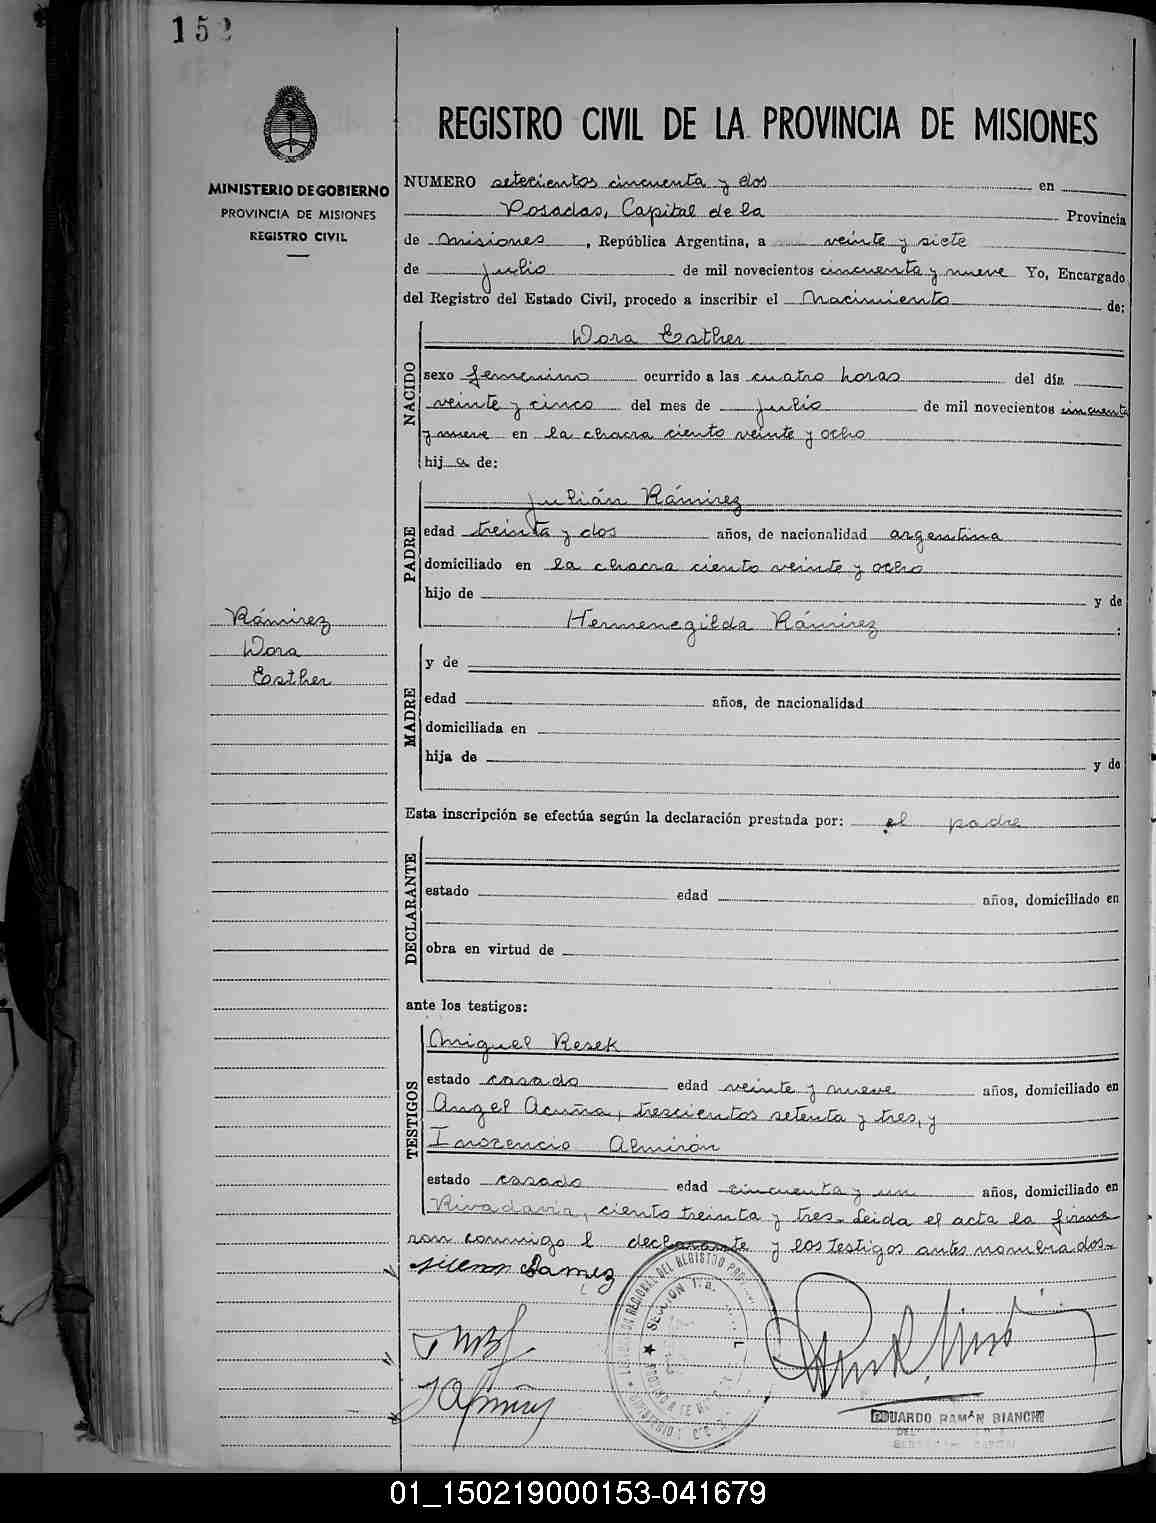 152
MINISTERIO DE GOBIERNO
PROVINCIA DE MISIONES
REGISTRO CIVIL
REGISTRO CIVIL DE LA PROVINCIA DE MISIONES
NUMERO setecientos cincuenta y dos en
Posadas, Capital de la Provincia
de Misiones, República Argentina, a veinte y siete
de Julio de mil novecientos cincuenta y nueve Yo, Encargado
del Registro del Estado Civil, procedo a inscribir el Nacimiento de:
NACIDO
Dora Esther
sexo femenino ocurrido a las cuatro horas del día
veinte y cinco del mes de Julio de mil novecientos cincuenta
y nueve en la chacra ciento veinte y ocho
hija de:
PADRE
Julián Rámirez
edad treinta y dos años, de nacionalidad argentina
domiciliado en la chacra ciento veinte y ocho
hijo de y de
Hermenegilda Rámirez:
Rámirez
Dora
Esther
MADRE
y de
edad años, de nacionalidad
domiciliada en
hija de y de
Esta inscripción se efectúa según la declaración prestada por: el padre
DECLARANTE
estado edad años, domiciliado en
obra en virtud de
ante los testigos:
TESTIGOS
Miguel Resek
estado casado edad veinte y nueve años, domiciliado en
Angel Acuña, trescientos setenta y tres, y
Inocencio Almirón
estado casado edad cincuenta y un años, domiciliado en
Rivadavia, ciento treinta y tres. Leida el acta la firma
ron conmigo l declarante y los testigos antes nombrados.
SECCION 1a.
EDUARDO RAMON BIANCHI
01_150219000153-041679